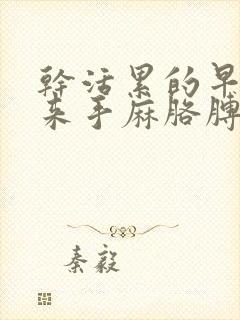 幹活累的早
来手麻胳膊
秦毅